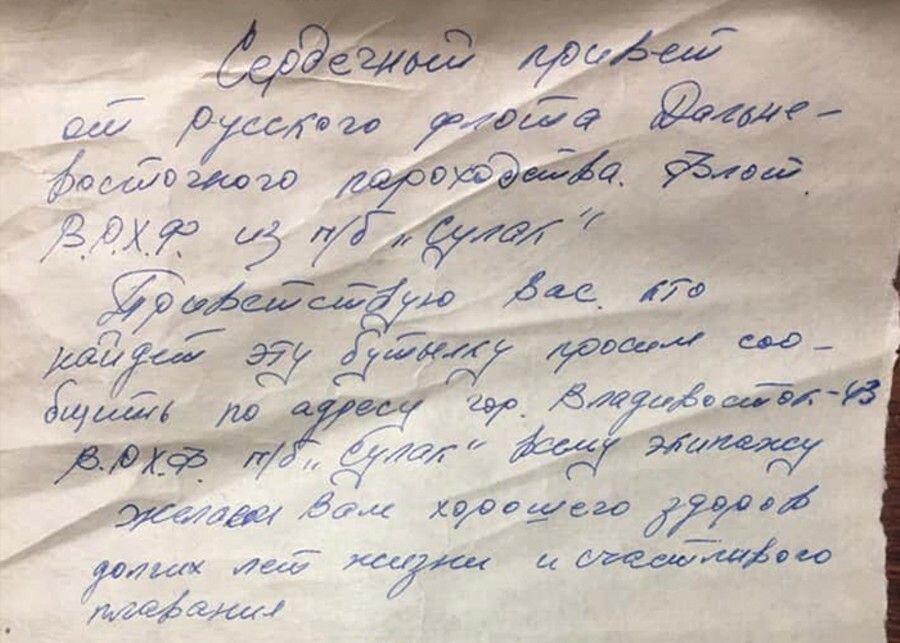 Сердечный привет
от русского флота Дальне-
восточного пароходства. Флот
В.О.Х.Ф. из п/б „Сулак"
Приветствую Вас. кто
найдет эту бутылку просим соо-
бщить по адресу гор. Владивосток-43
В.О.Х.Ф. п/б „Сулак" всему экипажу
желаем Вам хорошего здоров
долгих лет жизни и счастливого
плавания